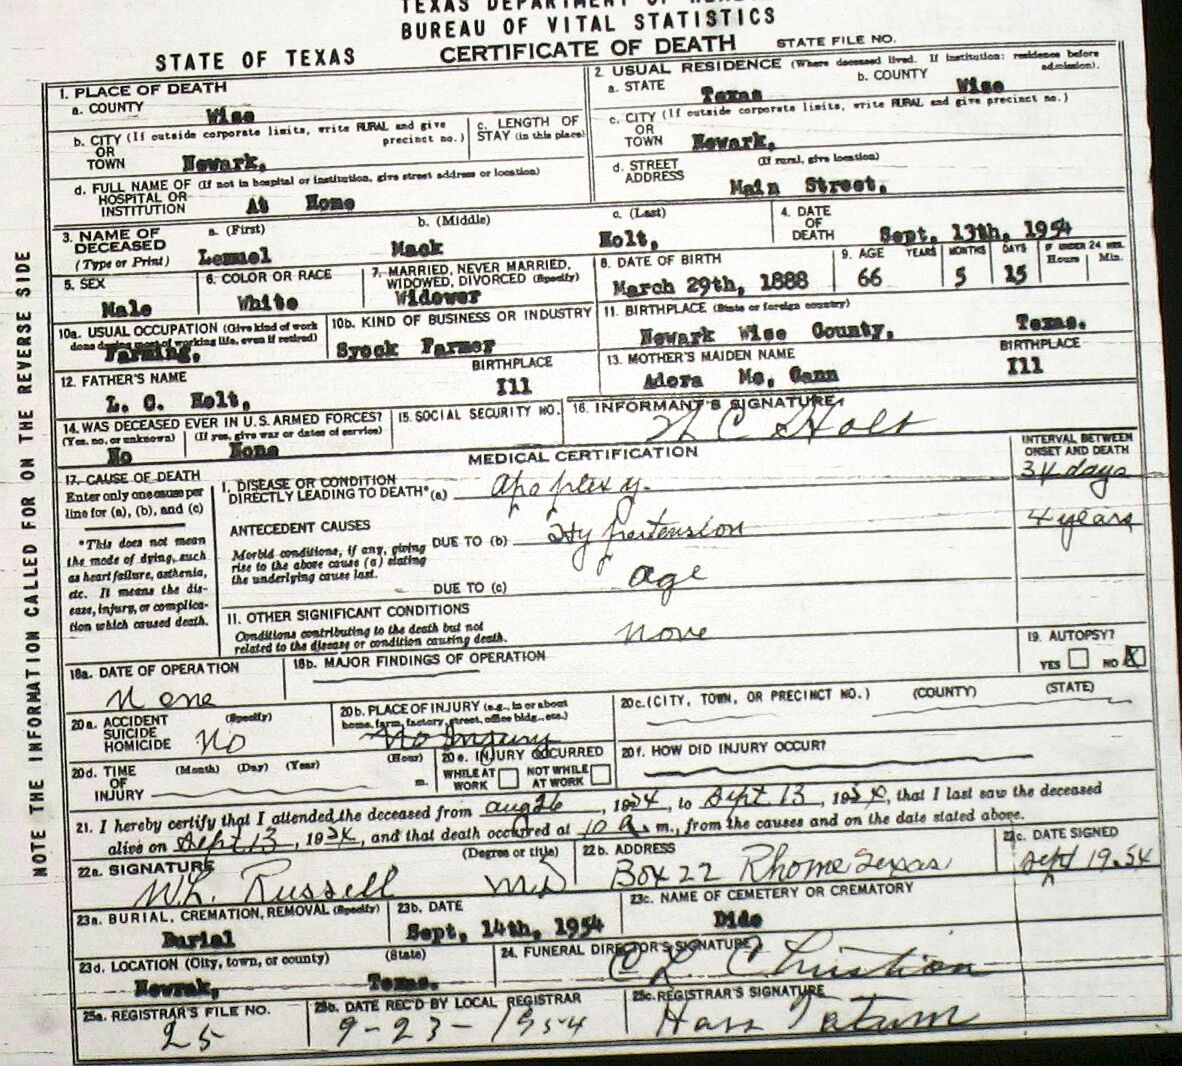 TEXAS DEPARTMENT OF HEALTH
BUREAU OF VITAL STATISTICS
STATE OF TEXAS CERTIFICATE OF DEATH STATE FILE NO.
NOTE THE INFORMATION CALLED FOR ON THE REVERSE SIDE
1. PLACE OF DEATH
a. COUNTY Wise
2. USUAL RESIDENCE (Where deceased lived. If institution: residence before admission).
a. STATE Texas b. COUNTY Wise
b. CITY (If outside corporate limits, write RURAL and give precinct no.)
OR
TOWN Newark,
c. LENGTH OF STAY (in this place)
c. CITY (If outside corporate limits, write RURAL and give precinct no.)
OR
TOWN Newark,
d. FULL NAME OF (If not in hospital or institution, give street address or location)
HOSPITAL OR
INSTITUTION At Home
d. STREET ADDRESS (If rural, give location)
Main Street,
3. NAME OF DECEASED (Type or Print)
a. (First) b. (Middle) c. (Last)
Lemuel Mack Holt,
4. DATE OF DEATH Sept, 13th, 1954
5. SEX
Male
6. COLOR OR RACE
White
7. MARRIED, NEVER MARRIED, WIDOWED, DIVORCED (Specify)
Widower
8. DATE OF BIRTH
March 29th, 1888
9. AGE YEARS MONTHS DAYS IF UNDER 24 HRS. Hours Min.
66 5 15
10a. USUAL OCCUPATION (Give kind of work done during most of working life, even if retired)
Farming,
10b. KIND OF BUSINESS OR INDUSTRY
Syock Farmer
11. BIRTHPLACE (State or foreign country)
Newark Wise County, Texas.
12. FATHER'S NAME BIRTHPLACE
L. C. Holt, Ill
13. MOTHER'S MAIDEN NAME BIRTHPLACE
Adora Mc, Cann Ill
14. WAS DECEASED EVER IN U.S. ARMED FORCES?
(Yes, no, or unknown) (If yes, give war or dates of service)
No None
15. SOCIAL SECURITY NO.
16. INFORMANT'S SIGNATURE
C Holt
MEDICAL CERTIFICATION
INTERVAL BETWEEN ONSET AND DEATH
17. CAUSE OF DEATH
Enter only one cause per
line for (a), (b), and (c)
*This does not mean
the mode of dying, such
as heart failure, asthenia,
etc. It means the dis-
ease, injury, or complica-
tion which caused death.
I. DISEASE OR CONDITION
DIRECTLY LEADING TO DEATH*(a) Apoplexy. 34 days
ANTECEDENT CAUSES
Morbid conditions, if any, giving
rise to the above cause (a) stating
the underlying cause last.
DUE TO (b) Hypertension 4 years
DUE TO (c) age
11. OTHER SIGNIFICANT CONDITIONS
Conditions contributing to the death but not
related to the disease or condition causing death.
none
18a. DATE OF OPERATION
None
18b. MAJOR FINDINGS OF OPERATION
19. AUTOPSY?
YES NO X
20a. ACCIDENT (Specify)
SUICIDE
HOMICIDE No
20b. PLACE OF INJURY (e.g., in or about home, farm, factory, street, office bldg., etc.)
No Injury
20c. (CITY, TOWN, OR PRECINCT NO.) (COUNTY) (STATE)
20d. TIME (Month) (Day) (Year) (Hour)
OF
INJURY m.
20e. INJURY OCCURRED
WHILE AT WORK NOT WHILE AT WORK
20f. HOW DID INJURY OCCUR?
21. I hereby certify that I attended the deceased from aug 26, 1954, to Sept 13, 1954, that I last saw the deceased
alive on Sept 13, 1954, and that death occurred at 10 A. m., from the causes and on the date stated above.
22a. SIGNATURE (Degree or title)
W.L. Russell MD
22b. ADDRESS
Box 22 Rhome Texas
22c. DATE SIGNED
Sept 19.54
23a. BURIAL, CREMATION, REMOVAL (Specify)
Burial
23b. DATE
Sept, 14th, 1954
23c. NAME OF CEMETERY OR CREMATORY
Dido
23d. LOCATION (City, town, or county) (State)
Newrak, Texas.
24. FUNERAL DIRECTOR'S SIGNATURE
C L Christian
25a. REGISTRAR'S FILE NO.
25
25b. DATE REC'D BY LOCAL REGISTRAR
9-23-1954
25c. REGISTRAR'S SIGNATURE
Tatum